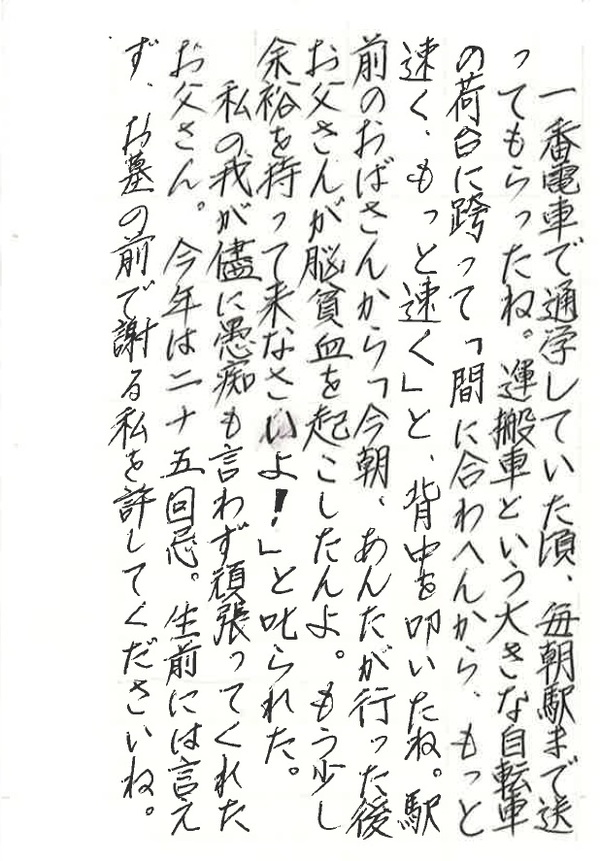 一番電車で通学していた頃、毎朝駅まで送
ってもらったね。運搬車という大きな自転車
の荷台に跨って「間に合わへんから、もっと
速く、もっと速く」と、背中を叩いたね。駅
前のおばさんから「今朝、あんたが行った後
お父さんが脳貧血を起こしたんよ。もう少し
余裕を持って来なさいよ!」と叱られた。
私の我が儘に愚痴も言わず頑張ってくれた
お父さん。今年は二十五回忌。生前には言え
ず、お墓の前で謝る私を許してくださいね。